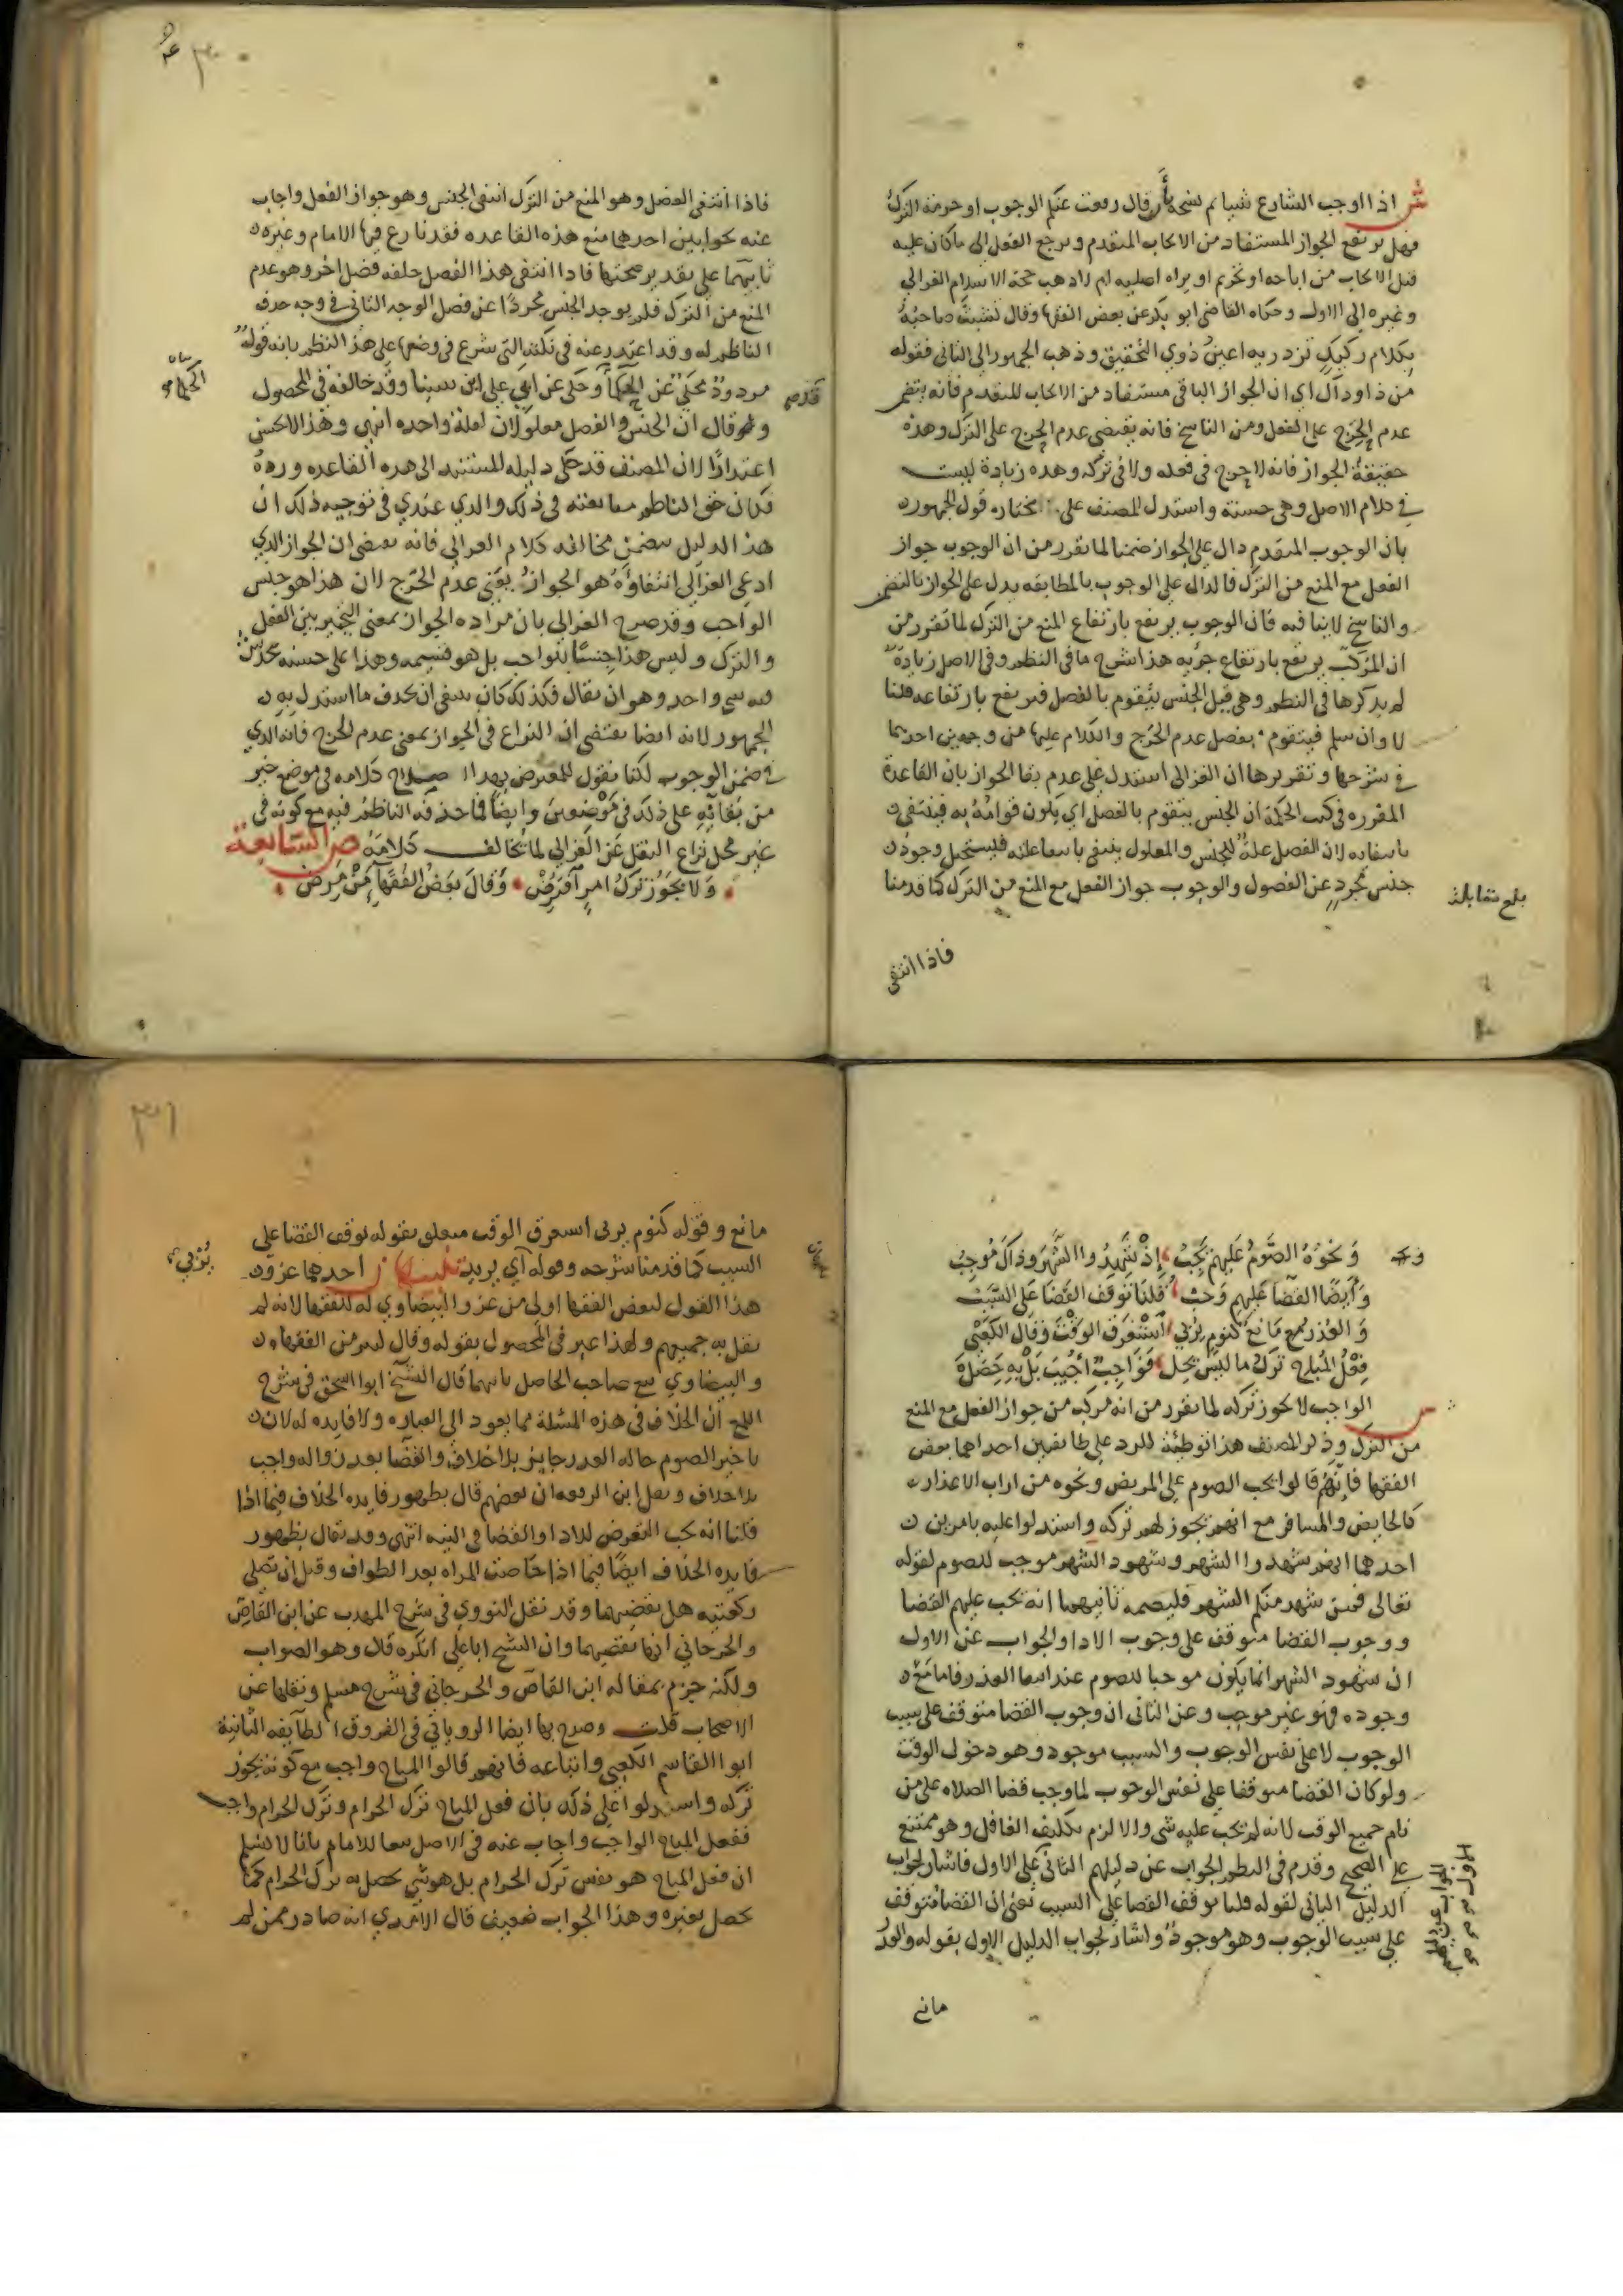 ش اذا اوجب الشارع شيا ثم نسخه بأن قال رفعت عنكم الوجوب او حرمة الترك
فهل يرتفع الجواز المستفاد من الايجاب المتقدم ويرجع الفعل الى ماكان عليه
قبل الايجاب من اباحه او تحريم او براه اصليه ام لا ذهب حجة الاسلام الغزالي
وغيره الى الاول وحكاه القاضي ابو بكر عن بعض الفقها وقال تشبث صاحبه
بكلام ركيك تزدريه اعين ذوي التحقيق وذهب الجمهور الى الثاني فقوله
من ذا وذاك اي ان الجواز الباقي مستفاد من الايجاب المتقدم فانه يتضمن
عدم الحرج على الفعل ومن الناسخ فانه يقتضي عدم الحرج على الترك وهذه
حقيقة الجواز فانه لا حرج في فعله ولا في تركه وهذه زيادة ليست
في كلام الاصل وهي حسنة واستدل المصنف على مختاره قول الجمهور
بان الوجوب المتقدم دال على الجواز ضمنا لما تقرر من ان الوجوب جواز
الفعل مع المنع من الترك فالدال على الوجوب بالمطابقه يدل على الجواز بالتضمن
والناسخ لا ينافيه فان الوجوب يرتفع بارتفاع المنع من الترك لما تقرر من
ان المركب يرتفع بارتفاع جزيه هذا شرح ما في النظم وفي الاصل زيادة
لم يذكرها في النظم وهي قيل الجنس يتقوم بالفصل فيرتفع بارتفاعه قلنا
لا وان سلم فيتقوم بفصل عدم الحرج والكلام عليها من وجهين احدهما
في شرحها وتقريرها ان الغزالي استدل على عدم بقا الجواز بان القاعدة
المقرره في كتب الحكمة ان الجنس يتقوم بالفصل اي يكون قوامه به فينتفي
بانتفايه لان الفصل علة للجنس والمعلول ينتفي بانتفا علته فيستحيل وجود
جنس مجرد عن الفصول والوجوب جواز الفعل مع المنع من الترك كما قدمنا
بلغ مقابلة
فاذا انتفى
فاذا انتفى الفصل وهو المنع من الترك انتفى الجنس وهو جواز الفعل واجاب
عنه بجوابين احدهما منع هذه القاعده فقد نازع فيها الامام وغيره
ثانيهما على تقدير صحتها فاذا انتفى هذا الفصل خلفه فصل اخر وهو عدم
المنع من الترك فلم يوجد الجنس مجردًا عن فصل الوجه الثاني في وجه حذف
الناظم له وقد اعتذر عنه في نكته التي شرع في وضعها على هذا النظم بانه قول
مردود محكي عن الحكما وحكى عن ابي علي ابن سينا وقد خالفه في المحصول
الحكما
بيان
قدم
وقال ان الجنس والفصل معلولان لعلة واحده انتهى وهذا لا يحسن
اعتذارًا لان المصنف قد حكى دليله المستند الى هذه القاعده ورده
فكان حق الناظم متابعته في ذلك والذي عندي في توجيه ذلك ان
هذا الدليل يتضمن مخالفه كلام الغزالي فانه يقتضي ان الجواز الذي
ادعى الغزالي انتفاؤه هو الجواز بمعنى عدم الحرج لان هذا هو جنس
الواجب وقد صرح الغزالي بان مراده الجواز بمعنى التخيير بين الفعل
والترك وليس هذا جنسًا للواجب بل هو قسيمه وهذا على حسنه يخدش
فيه شي واحد وهو ان يقال فكذلك كان ينبغي ان يحذف ما استدل به
الجمهور لانه ايضا يقتضي ان النزاع في الجواز بمعنى عدم الحرج فانه الذي
في ضمن الوجوب لكنا نقول للمعترض بهذا كلامه في موضع خير
من بقايه على ذلك في موضعين وايضًا فما حذفه الناظم فيه مع كونه في
غير محل نزاع النقل عن الغزالي لما يخالف كلامه ص السابعة
ولا يجوز ترك امر افترض وقال بعض الفقها من مرض
ونحوه الصوم عليهم يجب اذ شهدوا الشهر وذاك موجب
وايضا القضا عليهم وجب قلنا توقف القضا على السبب
والعذر مع مانع كنوم يربي استغرق الوقت وقال الكعبي
فعل المباح ترك ما ليس يحل فواجب اجيب بل به حصل
ش الواجب لا يجوز تركه لما تقرر من انه مركب من جواز الفعل مع المنع
من الترك وذكر المصنف هذا توطئة للرد على طايفتين احداهما بعض
الفقها فانهم قالوا يجب الصوم على المريض ونحوه من ارباب الاعذار
كالحايض والمسافر مع انهم يجوز لهم تركه واستدلوا عليه بامرين
احدهما انهم شهدوا الشهر وشهود الشهر موجب للصوم لقوله
تعالى فمن شهد منكم الشهر فليصمه ثانيهما انه يجب عليهم القضا
ووجوب القضا متوقف على وجوب الادا والجواب عن الاول
ان شهود الشهر انما يكون موجبا للصوم عند انتفا العذر فاما مع
وجوده فهو غير موجب وعن الثاني ان وجوب القضا متوقف على سبب
الوجوب لا على نفس الوجوب والسبب موجود وهو دخول الوقت
ولو كان القضا متوقفا على نفس الوجوب لما وجب قضا الصلاه على من
نام جميع الوقت لانه لم يجب عليه شي والا لزم تكليف الغافل وهو ممتنع
على الصحيح وقدم في النظم الجواب عن دليلهم الثاني على الاول فاشار لجواب
الدليل الثاني لقوله قلنا توقف القضا على السبب يعني ان القضا متوقف
على سبب الوجوب وهو موجود واشار لجواب الدليل الاول بقوله والعذر
مانع
مانع وقوله كنوم يربى استغرق الوقت متعلق بقوله توقف القضا على
السبب كما قدمنا شرحه وقوله اي يريد تنبيهات احدها عزوه
هذا القول لبعض الفقها اولى من عزو البيضاوي له للفقها لانه لم
يقل به جميعهم ولهذا عبر في المحصول بقوله وقال كثير من الفقها
والبيضاوي تبع صاحب الحاصل ثانيها قال الشيخ ابو اسحق في شرح
اللمع ان الخلاف في هذه المسئلة مما يعود الى العباره ولا فايده له لان
تاخير الصوم حاله العذر جايز بلا خلاف والقضا بعد زواله واجب
بلا خلاف ونقل ابن الرفعه ان بعضهم قال بظهور فايده الخلاف فيما اذا
قلنا انه يجب التعرض للادا والقضا في النيه انتهى وقد يقال بظهور
فايده الخلاف ايضًا فيما اذا حاضت المراه بعد الطواف وقبل ان تصلي
ركعتيه هل تقضيهما وقد نقل النووي في شرح المهذب عن ابن القاص
والجرجاني انها تقضيهما وان الشيخ ابا علي انكره قال وهو الصواب
ولكنه جزم بمقاله ابن القاص والجرجاني في شرح مسلم ونقلها عن
الاصحاب قلت وصرح بها ايضا الروياني في الفروق الطايفه الثانية
ابو القاسم الكعبي واتباعه فانهم قالوا المباح واجب مع كونه يجوز
تركه واستدلوا على ذلك بان فعل المباح ترك الحرام وترك الحرام واجب
ففعل المباح الواجب واجاب عنه في الاصل تبعا للامام بانا لا نسلم
ان فعل المباح هو نفس ترك الحرام بل هو شي يحصل به ترك الحرام كما
يحصل بغيره وهذا الجواب ضعيف قال الامدي انه صادر ممن لم